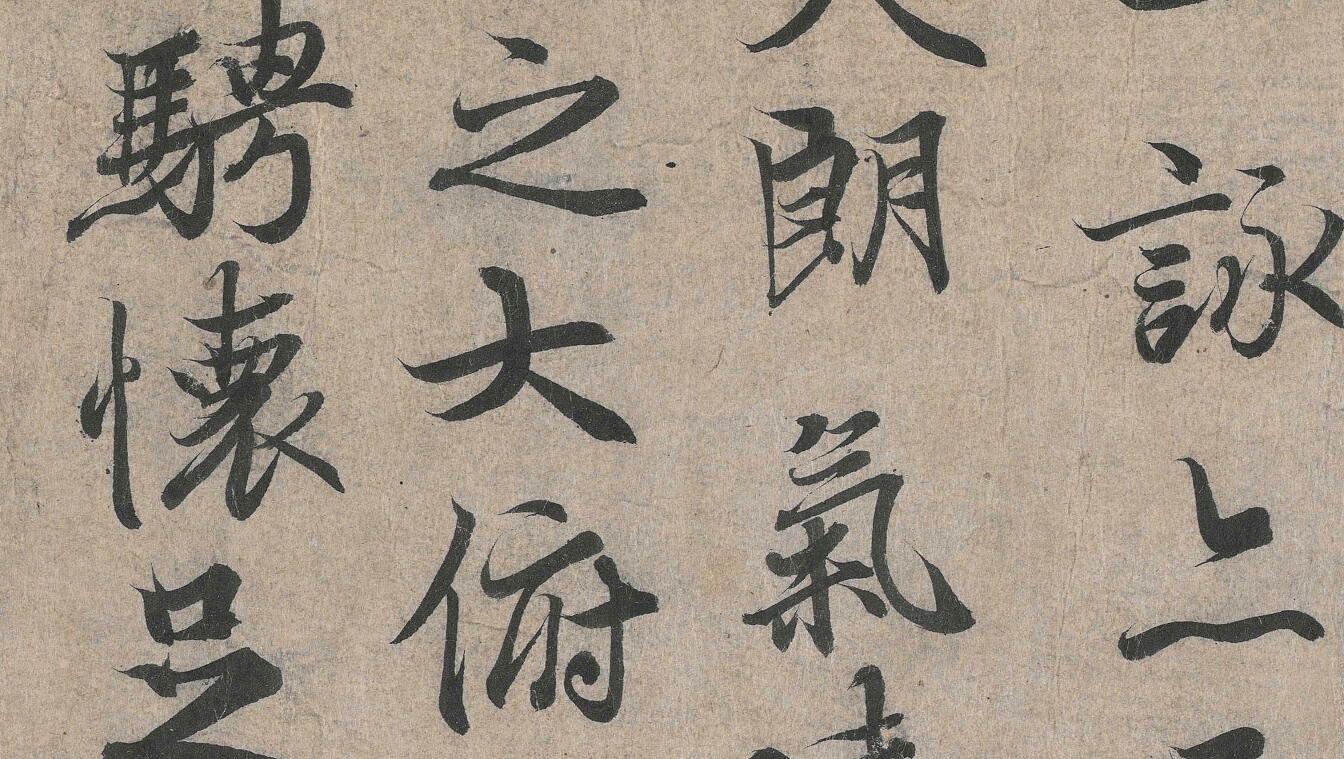 詠亦
朗氣
之大俯
騁懷足